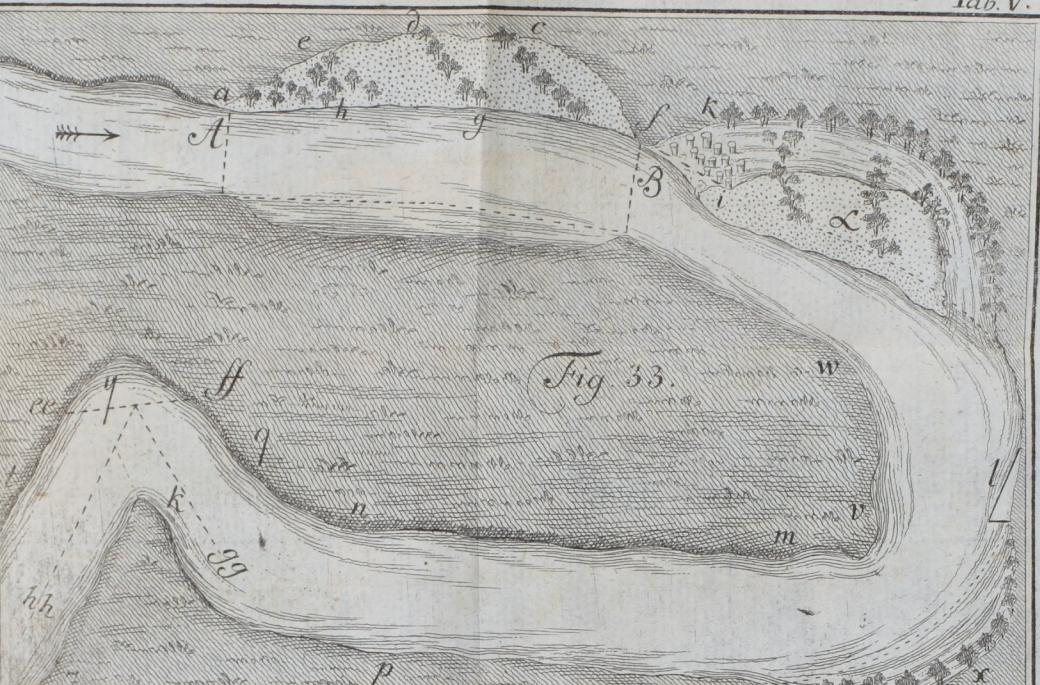 Tab. V.
e d c
a h g f k
A
B
i
α
Fig 33.
w
ee y ff
q
t
k
n
m
v
l
gg
hh
p
x